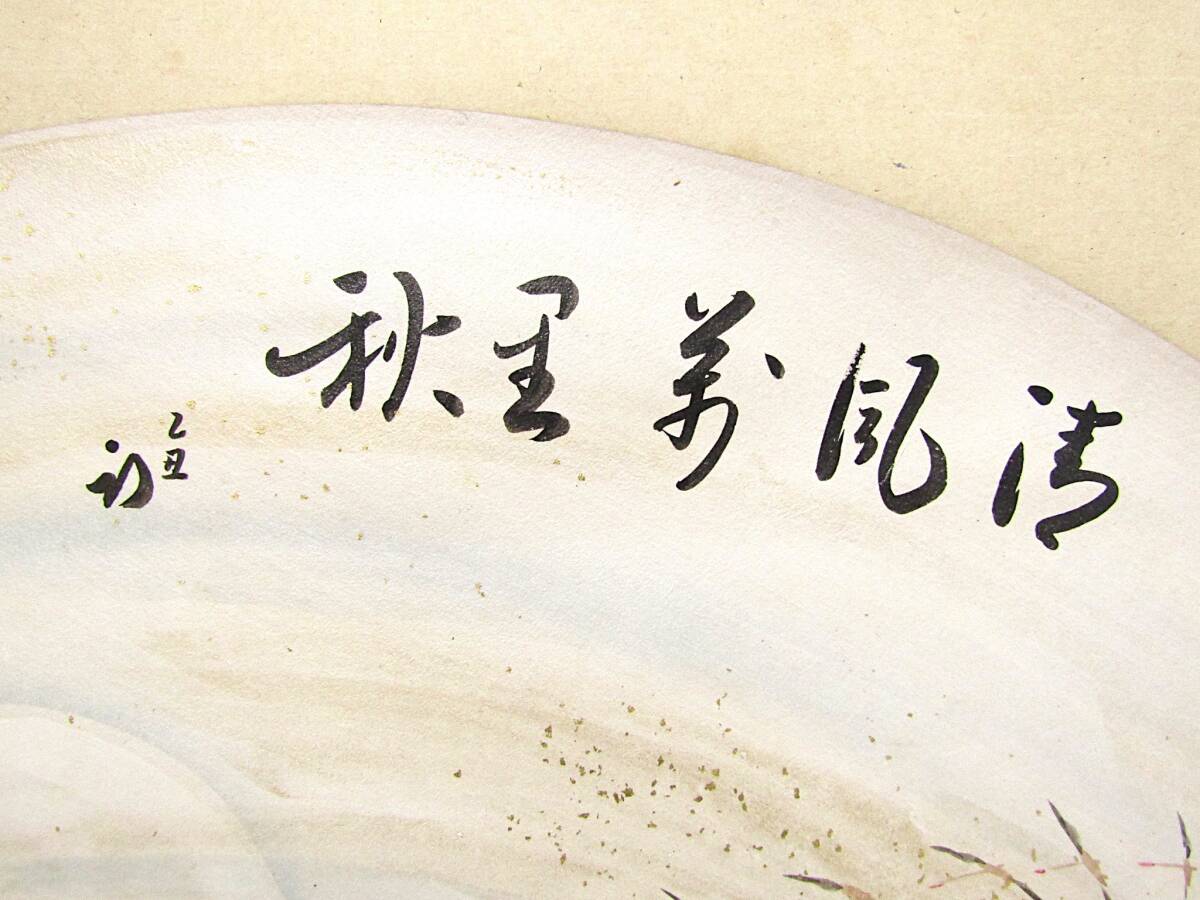 清風萬里秋
乙丑